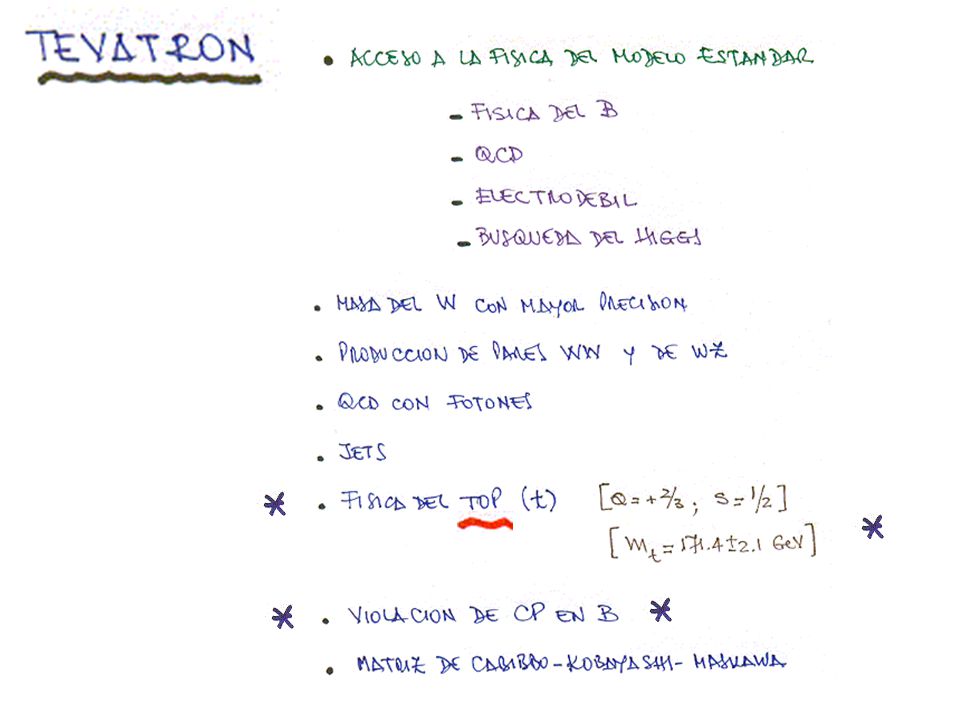 TEVATRON
• ACCESO A LA FISICA DEL MODELO ESTANDAR
- FISICA DEL B
- QCD
- ELECTRODEBIL
- BUSQUEDA DEL HIGGS
• MASA DEL W CON MAYOR PRECISION
• PRODUCCION DE PARES WW Y DE WZ
• QCD CON FOTONES
• JETS
* • FISICA DEL TOP (t) [Q=+2/3; S=1/2]
[m_t=171.4±2.1 GeV] *
* • VIOLACION DE CP EN B *
• MATRIZ DE CABIBBO-KOBAYASHI-MASKAWA